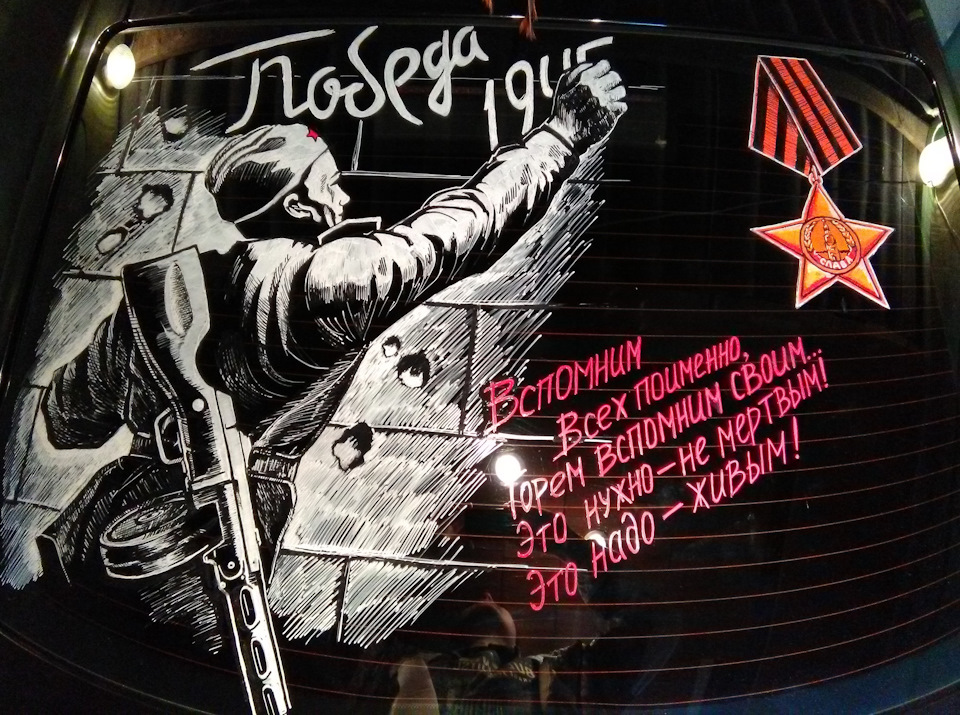 Победа
1945
СЛАВА
Вспомним
Всех поименно,
Горем вспомним своим...
Это нужно – не мертвым!
Это надо – живым!